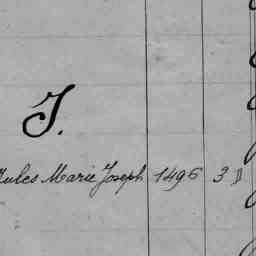 J.
Jules Marie Joseph 1496 3 D